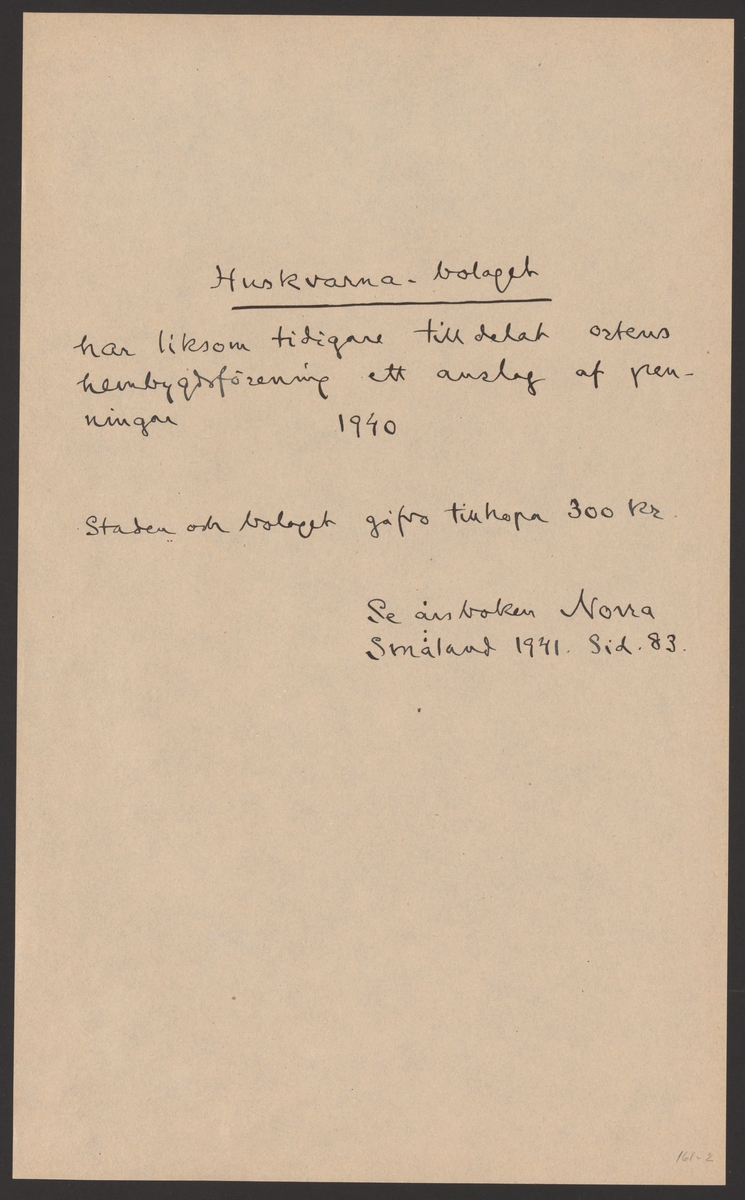 Huskvarna-bolaget
har liksom tidigare till delat ortens
hembygdsförening ett anslag af pen-
ningar 1940
Staden och bolaget gåfvo tillhopa 300 kr.
Se årsboken Norra
Småland 1941. Sid. 83.
161-2